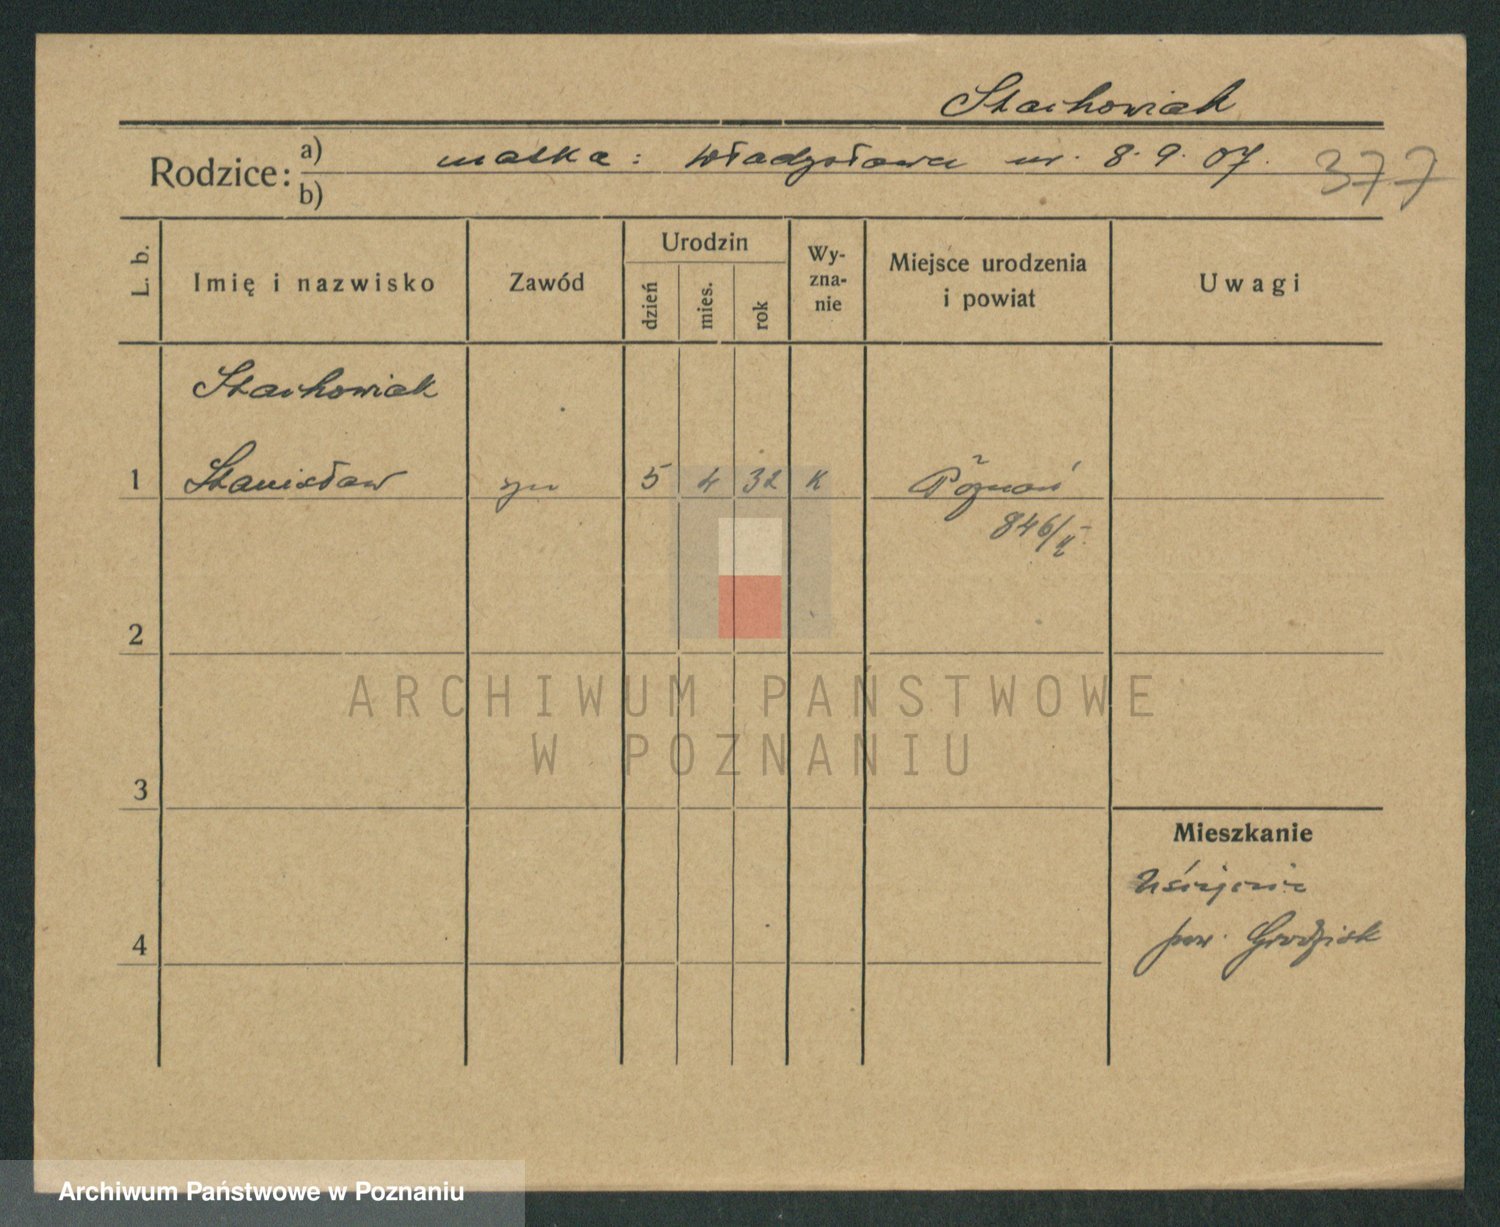 Stachowiak
Rodzice: a) matka: Władysława ur. 8.9.07.
377
b)
L. b.
Imię i nazwisko
Zawód
Urodzin
dzień
mies.
rok
Wy-
zna-
nie
Miejsce urodzenia
i powiat
Uwagi
Stachowiak
1 Stanisław syn 5 4 32 K Poznań
846/II
2
ARCHIWUM PAŃSTWOWE
W POZNANIU
3
Mieszkanie
pow. Grodzisk
4
Archiwum Państwowe w Poznaniu